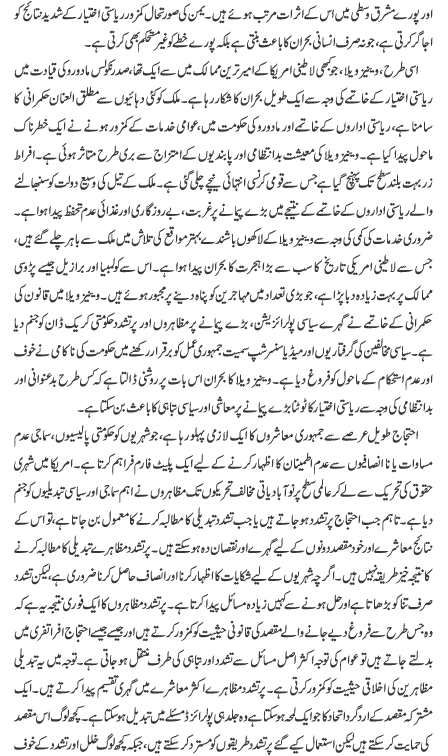 اور پورے مشرق وسطیٰ میں اس کے اثرات مرتب ہوئے ہیں۔ یمن کی صورتحال کمزور ریاستی اختیار کے شدید نتائج کو
اجاگر کرتی ہے، جو نہ صرف انسانی بحران کا باعث بنتی ہے بلکہ پورے خطے کو غیر مستحکم بھی کرتی ہے۔
اسی طرح، وینیزویلا، جو کبھی لاطینی امریکا کے امیر ترین ممالک میں سے ایک تھا، صدر نکولس مادورو کی قیادت میں
ریاستی اختیار کے خاتمے کی وجہ سے ایک طویل بحران کا شکار رہا ہے۔ ملک کو کئی دہائیوں سے مطلق العنان حکمرانی کا
سامنا ہے، ریاستی اداروں کے خاتمے اور مادورو کی حکومت میں، عوامی خدمات کے کمزور ہونے نے ایک خطرناک
ماحول پیدا کیا ہے۔ وینیزویلا کی معیشت بدانتظامی اور پابندیوں کے امتزاج سے بری طرح متاثر ہوئی ہے۔ افراط
زر بہت بلند سطح تک پہنچ گیا ہے جس سے قومی کرنسی انتہائی نیچے چلی گئی ہے۔ ملک کے تیل کی وسیع دولت کو سنبھالنے
والے ریاستی اداروں کے خاتمے کے نتیجے میں بڑے پیمانے پر غربت، بے روزگاری اور غذائی عدم تحفظ پیدا ہوا ہے۔
ضروری خدمات کی کمی کی وجہ سے وینیزویلا کے لاکھوں باشندے بہتر مواقع کی تلاش میں ملک سے باہر چلے گئے ہیں،
جس سے لاطینی امریکی تاریخ کا سب سے بڑا ہجرت کا بحران پیدا ہوا ہے۔ اس سے کولمبیا اور برازیل جیسے پڑوسی
ممالک پر بہت زیادہ دباؤ پڑا ہے، جو بڑی تعداد میں مہاجرین کو پناہ دینے پر مجبور ہوئے ہیں۔ وینیزویلا میں قانون کی
حکمرانی کے خاتمے نے گہرے سیاسی پولرائزیشن، بڑے پیمانے پر مظاہروں اور پرتشدد حکومتی کریک ڈاؤن کو جنم دیا
ہے۔ سیاسی مخالفین کی گرفتاریوں اور میڈیا سنسرشپ سمیت جمہوری عمل کو برقرار رکھنے میں حکومت کی ناکامی نے خوف
اور عدم استحکام کے ماحول کو فروغ دیا ہے۔ وینیزویلا کا بحران اس بات پر روشنی ڈالتا ہے کہ کس طرح بدعنوانی اور
بدانتظامی کی وجہ سے ریاستی اختیار کا ٹوٹنا بڑے پیمانے پر معاشی اور سیاسی تباہی کا باعث بن سکتا ہے۔
احتجاج طویل عرصے سے جمہوری معاشروں کا ایک لازمی پہلو رہا ہے، جو شہریوں کو حکومتی پالیسیوں، سماجی عدم
مساوات یا ناانصافیوں سے عدم اطمینان کا اظہار کرنے کے لیے ایک پلیٹ فارم فراہم کرتا ہے۔ امریکا میں شہری
حقوق کی تحریک سے لے کر عالمی سطح پر نوآبادیاتی مخالف تحریکوں تک مظاہروں نے اہم سماجی اور سیاسی تبدیلیوں کو جنم
دیا ہے۔ تاہم جب احتجاج پرتشدد ہو جاتے ہیں یا جب تشدد تبدیلی کا مطالبہ کرنے کا معمول بن جاتا ہے، تو اس کے
نتائج معاشرے اور خود مقصد دونوں کے لیے گہرے اور نقصان دہ ہو سکتے ہیں۔ پرتشدد مظاہرے تبدیلی کا مطالبہ کرنے
کا نتیجہ خیز طریقہ نہیں ہیں۔ اگرچہ شہریوں کے لیے شکایات کا اظہار کرنا اور انصاف حاصل کرنا ضروری ہے، لیکن تشدد
صرف تناؤ کو بڑھاتا ہے اور حل ہونے سے کہیں زیادہ مسائل پیدا کرتا ہے۔ پرتشدد مظاہروں کا ایک فوری نتیجہ یہ ہے کہ
وہ جس طرح سے فروغ دیے جانے والے مقصد کی قانونی حیثیت کو کمزور کرتے ہیں اور جیسے جیسے احتجاج افراتفری میں
بدلتے جاتے ہیں تو عوام کی توجہ اکثر اصل مسائل سے تشدد اور تباہی کی طرف منتقل ہو جاتی ہے۔ توجہ میں یہ تبدیلی
مظاہرین کی اخلاقی حیثیت کو کمزور کرتی ہے۔ پرتشدد مظاہرے اکثر معاشرے میں گہری تقسیم پیدا کرتے ہیں۔ ایک
مشترکہ مقصد کے ارد گرد اتحاد کا جو ایک لمحہ ہو سکتا ہے وہ جلد ہی پولرائزڈ مسئلے میں تبدیل ہو سکتا ہے۔ کچھ لوگ اس مقصد
کی حمایت کر سکتے ہیں لیکن استعمال کیے گئے پرتشدد طریقوں کو مسترد کر سکتے ہیں، جبکہ کچھ لوگ خلل اور تشدد کے خوف